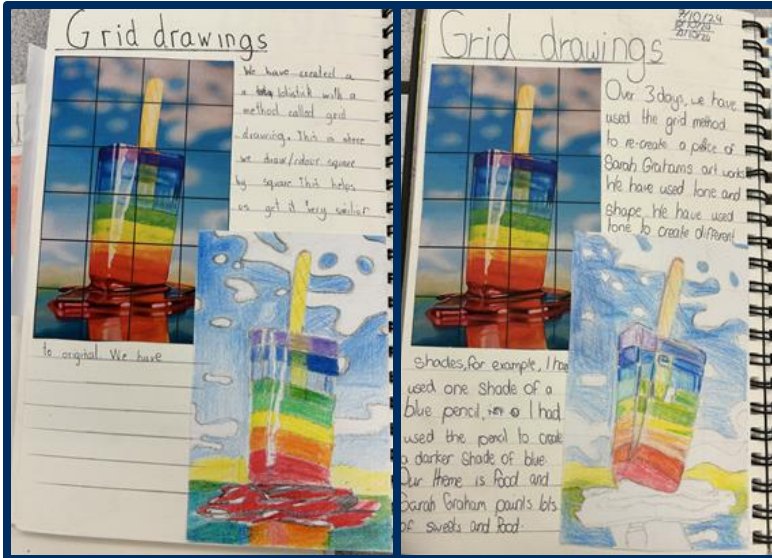 Grid drawings
We have created a
a lolistick with a
method called grid
drawing. This is where
we draw/colour square
by square This helps
us get it very similiar
to original. We have
7/10/24
Grid drawings
Over 3 days, we have
used the grid method
to re-create a peice of
Sarah Grahams art works
We have used tone and
shape. We have used
tone to create different
shades, for example, I have
used one shade of a
blue pencil, I had
used the pencil to create
a darker shade of blue.
Our theme is food and
Sarah Graham paints lots
of sweets and food